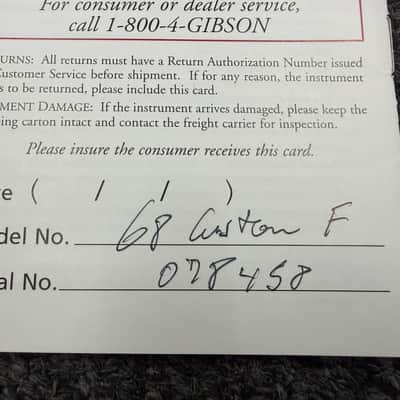 For consumer or dealer service,
call 1-800-4-GIBSON
URNS: All returns must have a Return Authorization Number issued
Customer Service before shipment. If for any reason, the instrument
s to be returned, please include this card.
MENT DAMAGE: If the instrument arrives damaged, please keep the
ing carton intact and contact the freight carrier for inspection.
Please insure the consumer receives this card.
e ( / / )
del No. 68 Custom F
al No. 078458